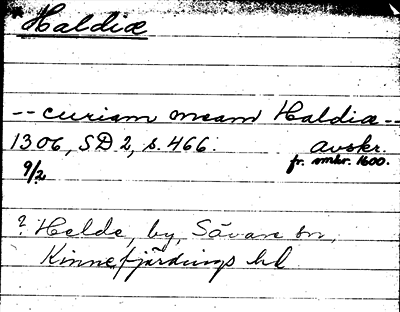 Haldiæ
-- curiam meam Haldiæ --
1306, SD 2, s. 466. avskr.
9/2 fr. omkr. 1600.
? Helde, by, Sävare sn,
Kinnefjärdings hd